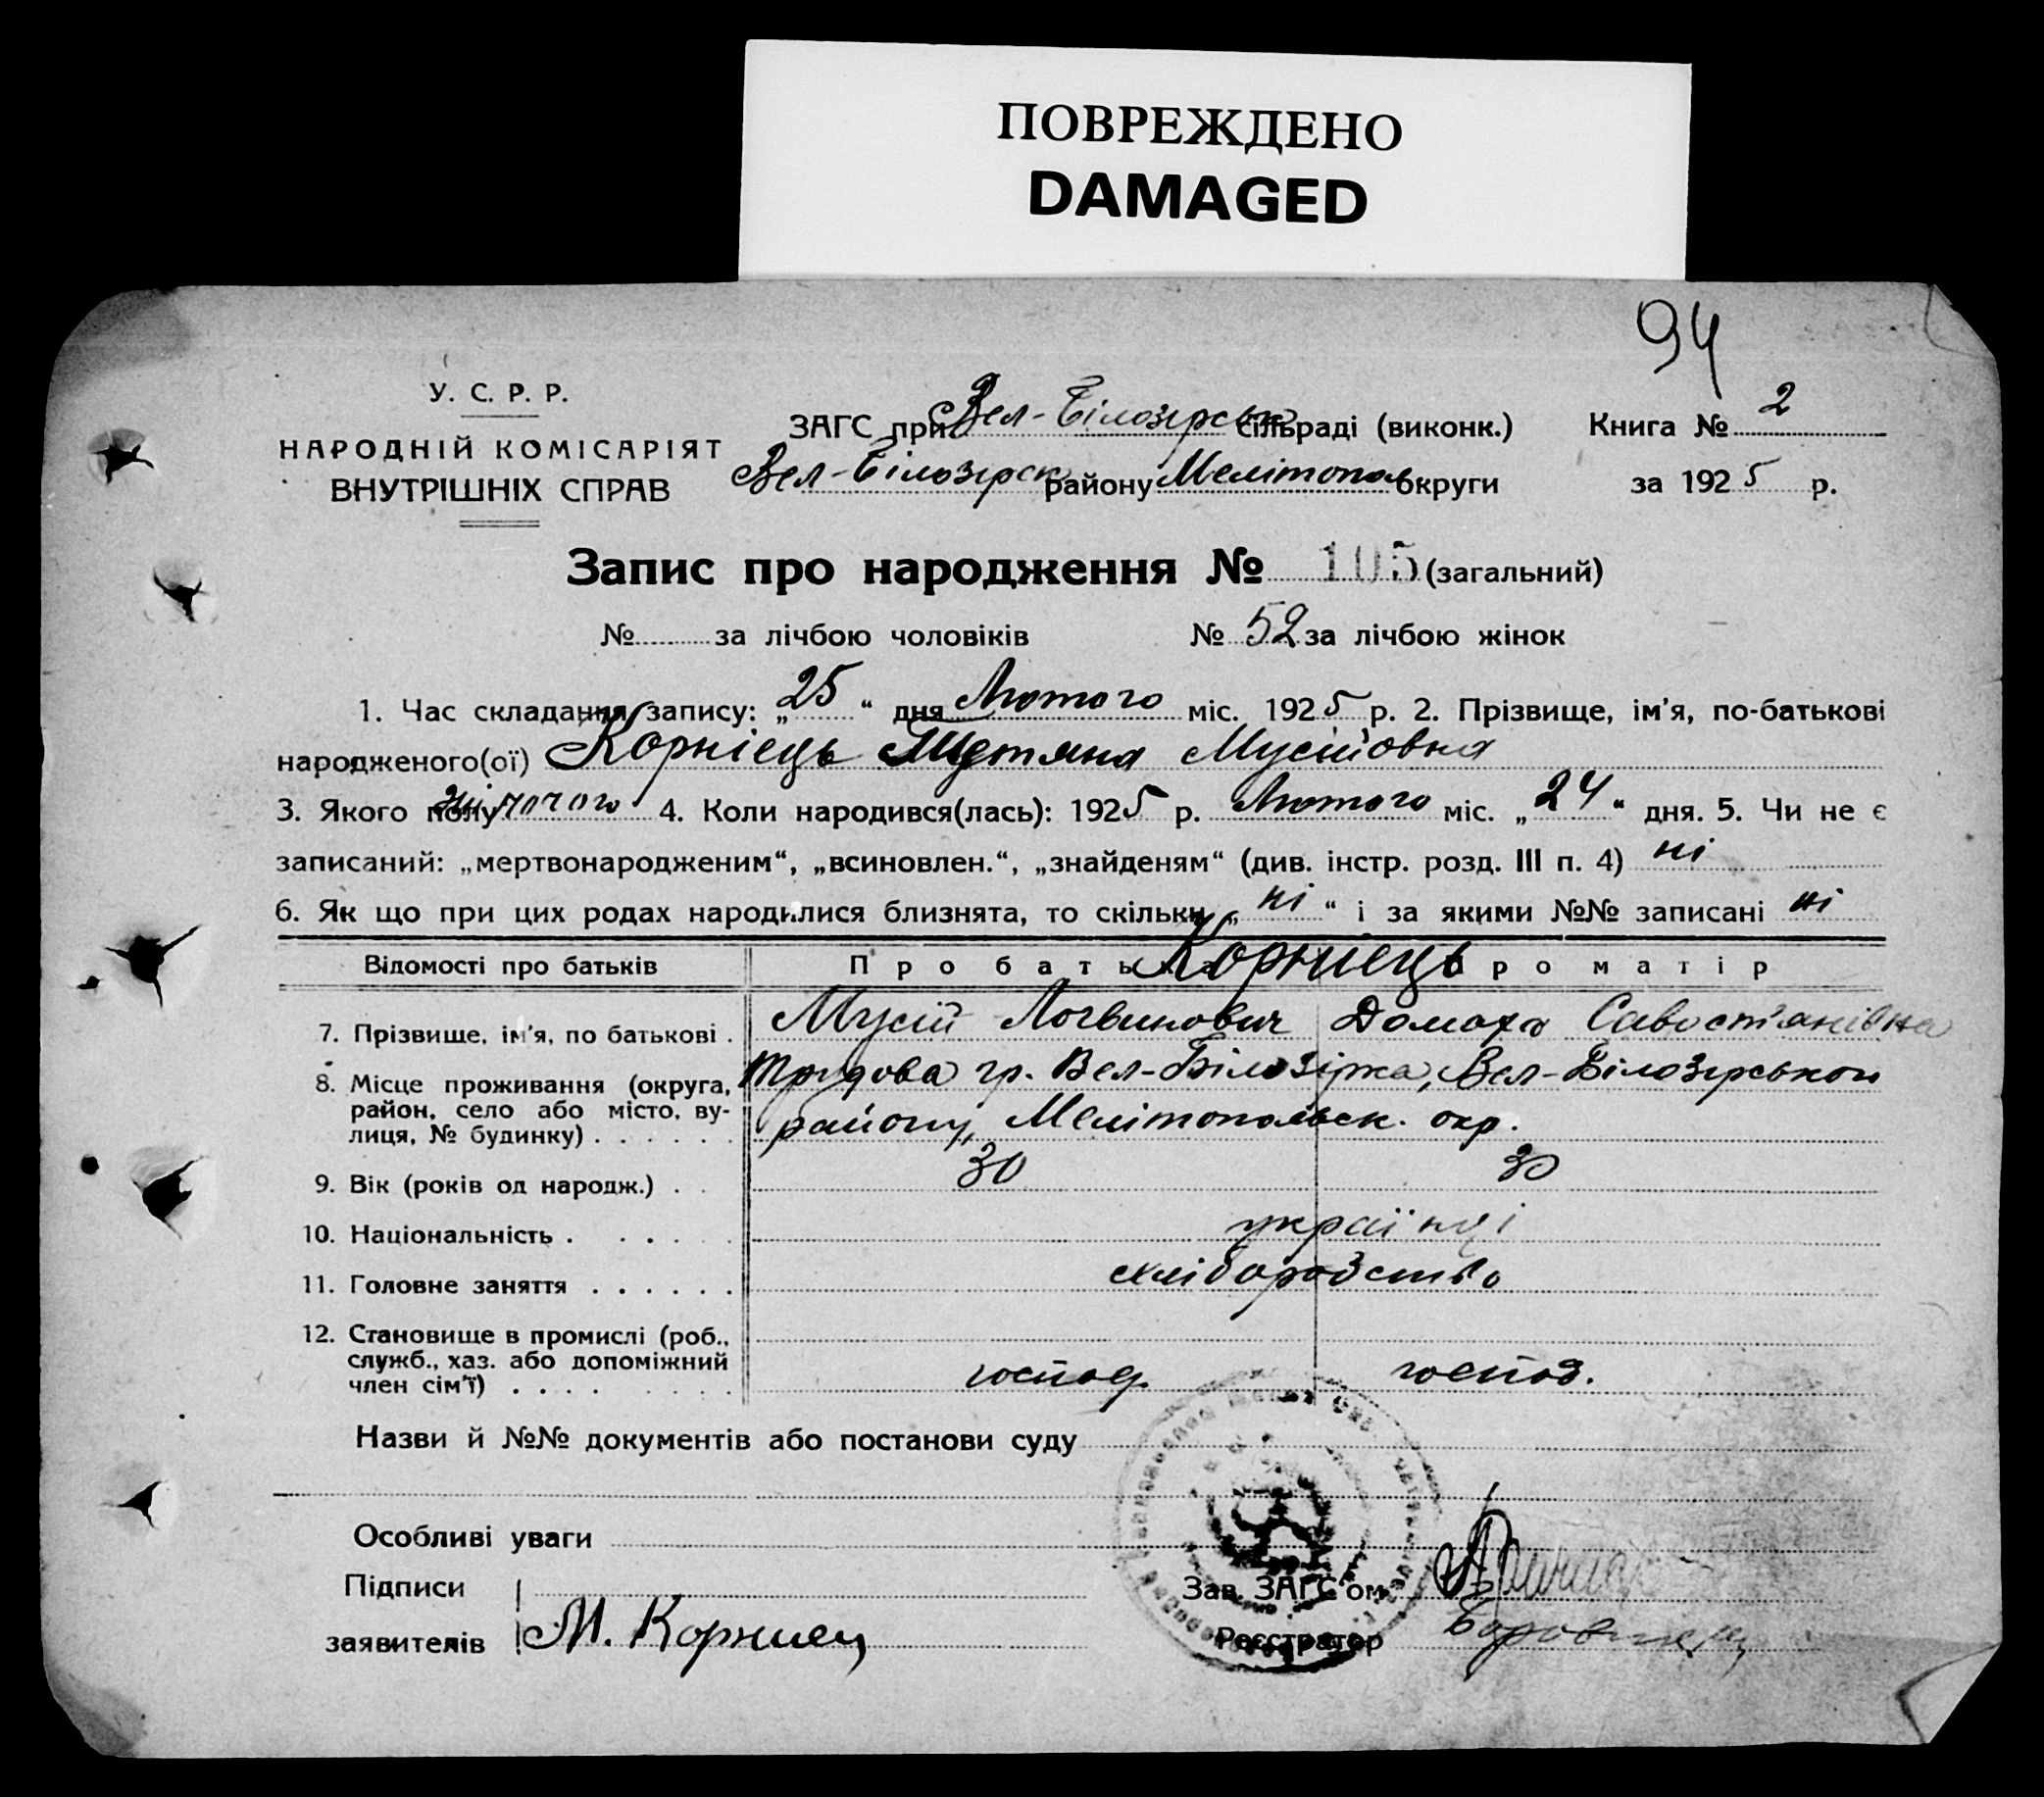 ПОВРЕЖДЕНО
DAMAGED
94
У. С. Р. Р.
НАРОДНІЙ КОМІСАРІЯТ
ВНУТРІШНІХ СПРАВ
ЗАГС при Вел-Білозірськ сільраді (виконк.)
Вел-Білозірск району Мелітопол округи
Книга № 2
за 1925 р.
Запис про народження № 105 (загальний)
№ за лічбою чоловіків № 52 за лічбою жінок
1. Час складання запису: „25“ дня Лютого міс. 1925 р. 2. Прізвище, ім'я, по-батькові
народженого(ої) Корнієць Тетяна Мусіївна
3. Якого полу жіночого 4. Коли народився(лась): 1925 р. Лютого міс. „24“ дня. 5. Чи не є
записаний: „мертвонародженим“, „всиновлен.“, „знайденям“ (див. інстр. розд. III п. 4) ні
6. Як що при цих родах народилися близнята, то скільки „ні“ і за якими №№ записані ні
Відомості про батьків Про батька Про матір
Корниець
7. Прізвище, ім'я, по батькові . Мусій Логвинович Домаха Савостянівна
8. Місце проживання (округа, район, село або місто, вулиця, № будинку) . . . . . . Трудова гр. Вел-Білозірка, Вел-Білозірського
району, Мелітопольск. окр.
9. Вік (років од народж.) . . 30 30
10. Національність . . . . . . українці
11. Головне заняття . . . . . . хліборобство
12. Становище в промислі (роб., служб., хаз. або допоміжний член сім'ї) . . . . господ. господ.
Назви й №№ документів або постанови суду
Особливі уваги
Підписи
заявителів М. Корниец
Зав. ЗАГС'ом
Реєстратор